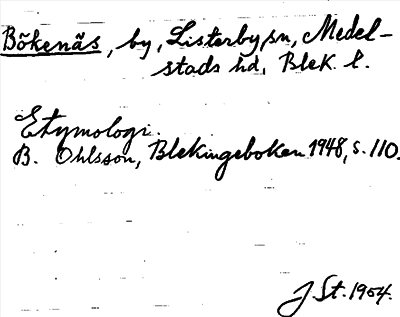 Bökenäs, by, Listerby sn, Medel-
stads hd, Blek. l.
Etymologi.
B. Ohlsson, Blekingeboken 1948, s. 110.
J. St. 1954.